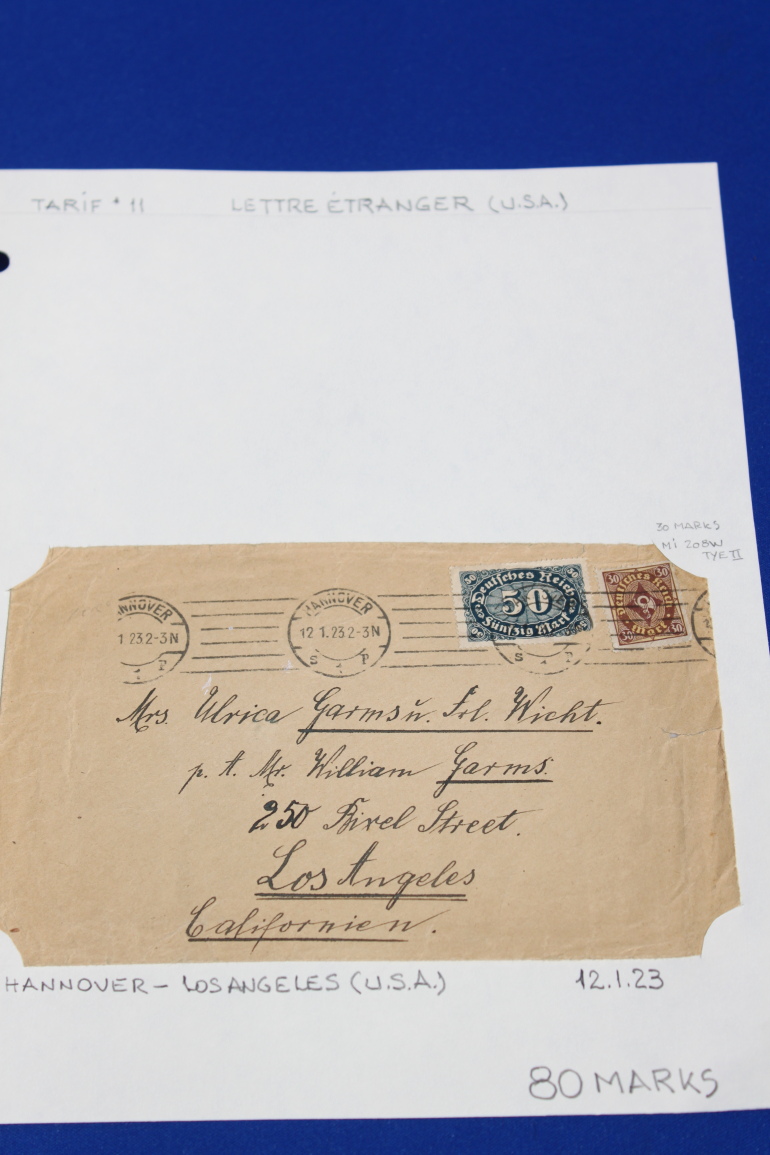 TARIF * 11 LETTRE ÉTRANGER (U.S.A.)
30 MARKS
Mi 208W
TYE II
HANNOVER
1 23 2-3 N
1 P
HANNOVER
12 1. 23 2-3 N
S 1 P
50 50
Deutsches Reich
50
Fünfzig Mark
30 30
Deutsches Reich
Mark
30 30
S 1 P
Mrs. Ulrica Garms u. Frl. Wicht.
p. A. Mr. William Garms.
250 Bixel Street.
Los Angeles
Californien.
HANNOVER – LOS ANGELES (U.S.A.) 12.1.23
80 MARKS